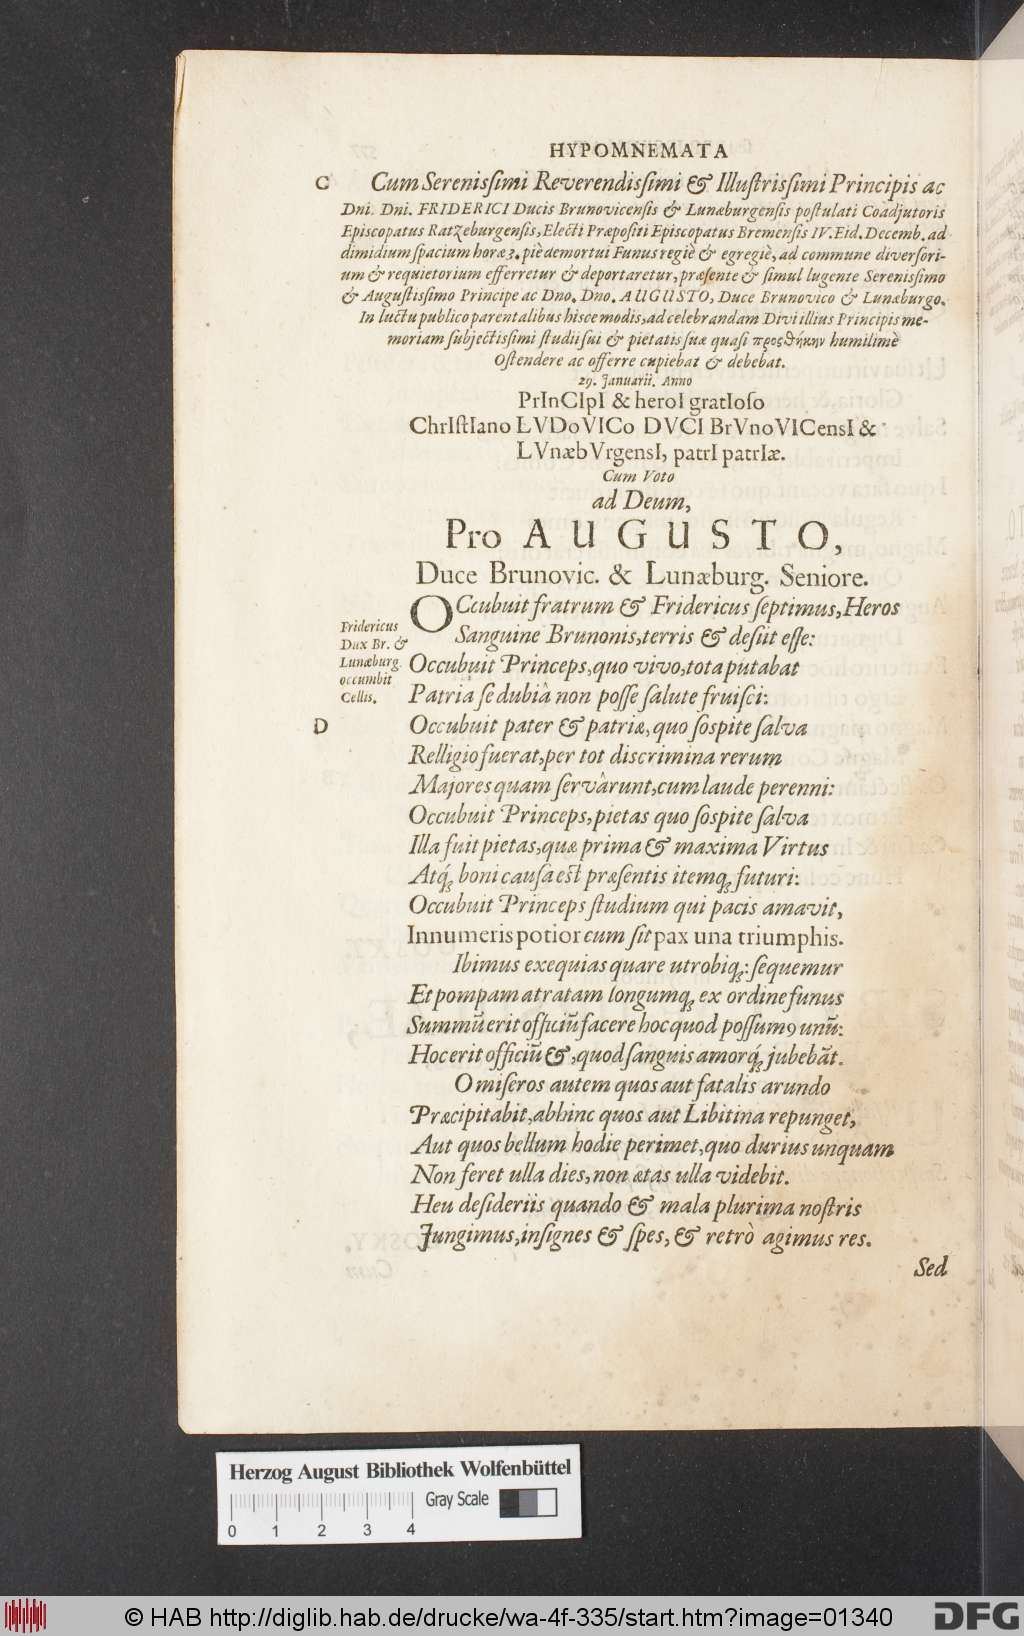 HYPOMNEMATA
C Cum Serenisſimi Reverendisſimi & Illuſtrisſimi Principis ac
Dni. Dni. FRIDERICI Ducis Brunovicenſis & Lunæburgenſis poſtulati Coadjutoris
Epiſcopatus Ratzeburgenſis, Electi Præpoſiti Epiſcopatus Bremenſis IV. Eid. Decemb. ad
dimidium ſpacium horæ 3. piè demortui Funus regiè & egregiè, ad commune diverſori-
um & requietorium efferretur & deportaretur, præſente & ſimul lugente Serenisſimo
& Auguſtisſimo Principe ac Dno. Dno. AUGUSTO, Duce Brunovico & Lunæburgo.
In luctu publico parentalibus hisce modis, ad celebrandam Divi illius Principis me-
moriam ſubjectisſimi ſtudii ſui & pietatis ſuæ quaſi προςθήκην humilimè
Oſtendere ac offerre cupiebat & debebat.
29. Januarii. Anno
PrInCIpI & heroI gratIoſo
ChrIſtIano LVDoVICo DVCI BrVnoVICensI &
LVnæbVrgensI, patrI patrIæ.
Cum Voto
ad Deum,
Pro AUGUSTO,
Duce Brunovic. & Lunæburg. Seniore.
OCcubuit fratrum & Fridericus ſeptimus, Heros
Sanguine Brunonis, terris & deſiit eſſe:
Fridericus
Dux Br. &
Lunæburg.
occumbit
Cellis.
Occubuit Princeps, quo vivo, tota putabat
Patria ſe dubiâ non poſſe ſalute fruiſci:
D Occubuit pater & patriæ, quo ſospite ſalva
Relligio fuerat, per tot discrimina rerum
Majores quam ſervârunt, cum laude perenni:
Occubuit Princeps, pietas quo ſospite ſalva
Illa fuit pietas, quæ prima & maxima Virtus
Atq́ꝫ boni cauſa eſt præſentis itemqꝫ futuri:
Occubuit Princeps ſtudium qui pacis amavit,
Innumeris potior cum ſit pax una triumphis.
Ibimus exequias quare utrobiqꝫ: ſequemur
Et pompam atratam longumqꝫ ex ordine funus
Summū erit officiū facere hoc quod poſſumꝯ unū:
Hoc erit officiū &, quod ſanguis amorq́ꝫ jubebāt.
O miſeros autem quos aut fatalis arundo
Præcipitabit, abhinc quos aut Libitina repunget,
Aut quos bellum hodie perimet, quo durius unquam
Non feret ulla dies, non ætas ulla videbit.
Heu deſideriis quando & mala plurima noſtris
Jungimus, inſignes & ſpes, & retrò agimus res.
Sed
Herzog August Bibliothek Wolfenbüttel
Gray Scale
0 1 2 3 4
© HAB http://diglib.hab.de/drucke/wa-4f-335/start.htm?image=01340
DFG